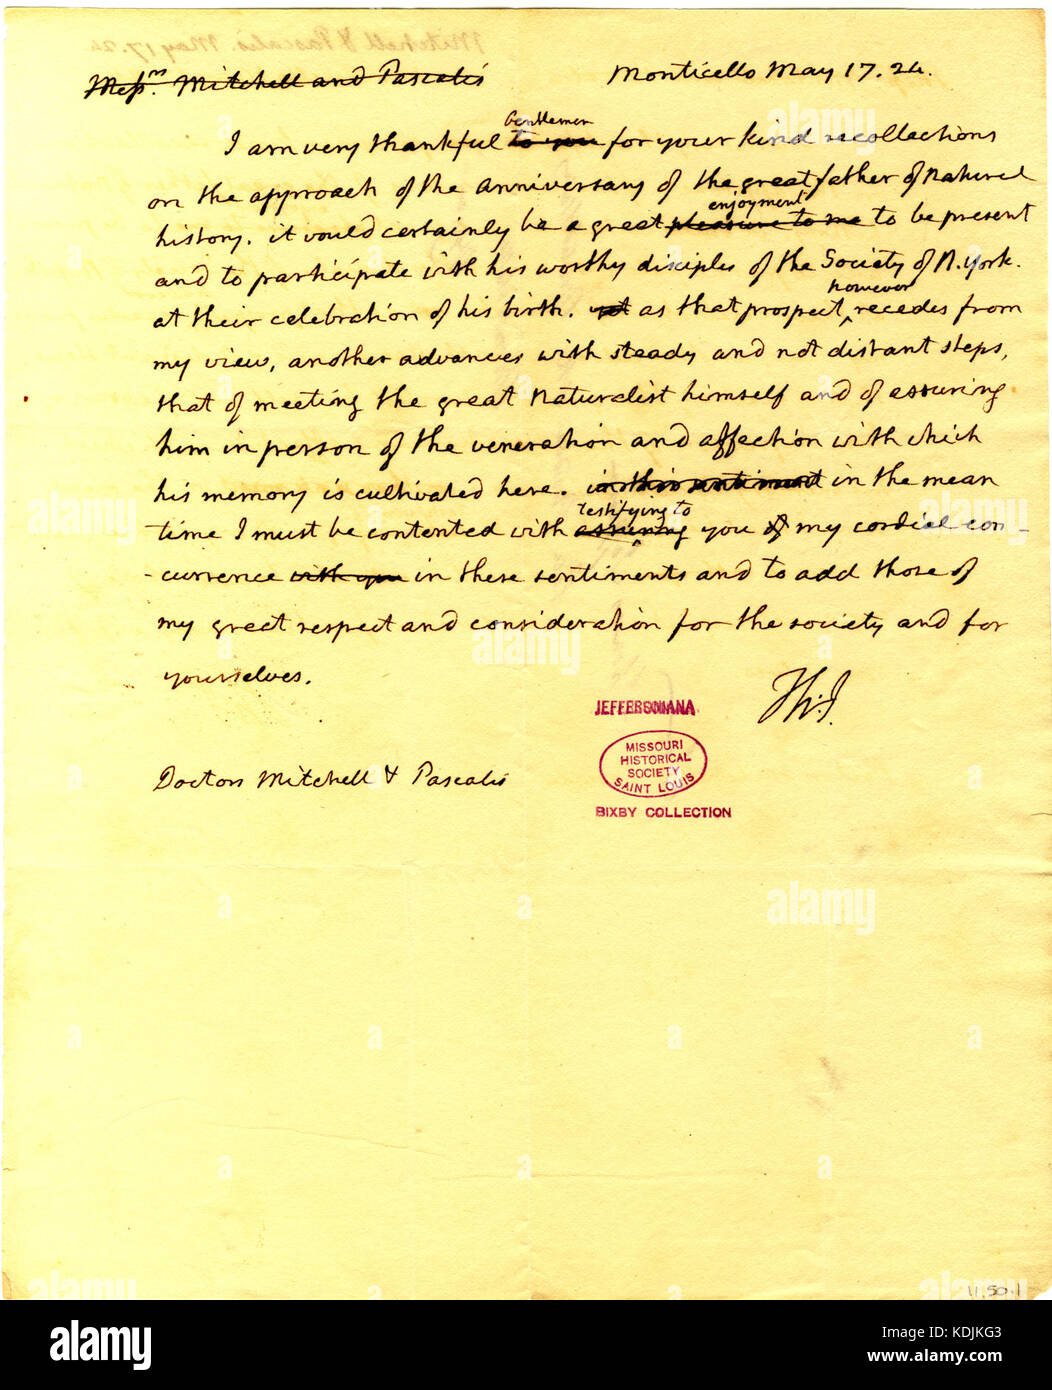 Mess.rs Mitchell and Pascalis
Monticello May 17. 24.
Gentlemen
I am very thankful to you for your kind recollections
on the approach of the anniversary of the great father of Natural
enjoyment
history. it would certainly be a great pleasure to me to be present
and to participate with his worthy disciples of the Society of N. York.
however
at their celebration of his birth. as that prospect ‸ recedes from
my view, another advances with steady and not distant steps,
that of meeting the great Naturalist himself and of assuring
him in person of the veneration and affection with which
his memory is cultivated here. in this sentiment in the mean
testifying to
time I must be contented with assuring you of my cordial con-
-currence with you in these sentiments and to add those of
my great respect and consideration for the society and for
yourselves.
Th:J.
JEFFERSONIANA
MISSOURI
HISTORICAL
SOCIETY
SAINT LOUIS
BIXBY COLLECTION
Doctors Mitchell & Pascalis
11.50.1
alamy
Image ID: KDJKG3
www.alamy.com